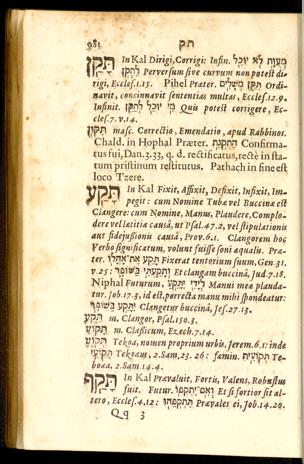 981 תק
תָּקַן In Kal Dirigi, Corrigi: Infin. מְעֻוָּת לֹא יוּכַל
לִתְקֹן Perversum sive curvum non potest di-
rigi, Eccles. 1.15. Pihel Præter. תִּקֵּן מְשָׁלִים Ordi-
navit, concinnavit sententias multas, Eccles. 12.9.
Infinit. מִי יוּכַל לְתַקֵּן Quis potest corrigere, Ec-
cles. 7. v. 14.
תִּקּוּן masc. Correctio, Emendatio, apud Rabbinos.
Chald. in Hophal Præter. הָתְקְנַת Confirma-
tus sui, Dan. 3.33, q. d. rectificatus, recte in sta-
tum pristinum restitutus. Pathach in fine est
loco Tzere.
תָּקַע In Kal Fixit, Affixit, Defixit, Infixit, Im-
pegit: cum Nomine Tuba vel Buccina est
Clangere: cum Nomine, Manus, Plaudere, Complo-
dere vel lætitia causâ, ut Psal. 47.2, vel stipulationis
aut fidejussionis causâ, Prov. 6.1. Clangorem hoc
Verbo significatum, volunt fuisse soni æqualis. Præ-
ter. תָּקַע אֶת אָהֳלוֹ Fixerat tentorium suum, Gen. 31.
v. 25: וְתָקַעְתִּי בַּשּׁוֹפָר Et clangam buccinâ, Jud. 7.18.
Niphal Futurum, לְיָדִי יִתָּקֵעַ Manui mea plauda-
tur, Job. 17.3, id est, porrecta manu mihi spondeatur:
יִתָּקַע בְּשׁוֹפָר Clangetur buccinâ, Jes. 27.13.
תֵּקַע m. Clangor, Psal. 150.3.
תָּקוֹעַ m. Classicum, Ezech. 7.14.
תְּקוֹעַ Tekoa, nomen proprium urbis, Jerem. 6.1: inde
תְּקוֹעִי Tekoaus, 2. Sam. 23. 26: fœmin. תְּקוֹעִית Te-
koaa, 2. Sam 14.4.
תָּקַף In Kal Prævaluit, Fortis, Valens, Robustus
fuit. Futur. וְאִם יִתְקְפוֹ Et si fortior sit al-
tero, Eccles. 4.12: תִּתְקְפֵהוּ Prævales ei, Job. 14.20.
Qq 3